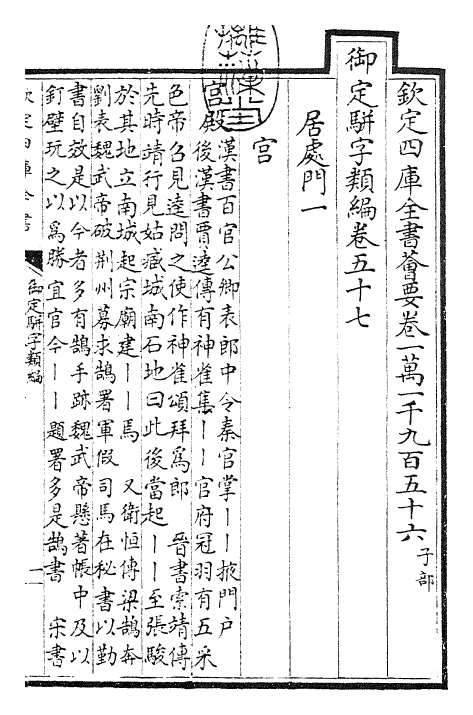 欽定四庫全書薈要卷一萬一千九百五十六 子部
御定駢字類編卷五十七
居處門一
宮
宮殿 漢書百官公卿表郎中令秦官掌丨丨掖門户
後漢書賈逵傳有神雀集丨丨官府冠羽有五采
色帝召見逵問之使作神雀頌拜為郎 晉書索靖傳
先時靖行見姑臧城南石地曰此後當起丨丨至張駿
於其地立南城起宗廟建丨丨焉 又衛恒傳梁鵠奔
劉表魏武帝破荆州募求鵠署軍假司馬在秘書以勤
書自效是以今者多有鵠手跡魏武帝懸著帳中及以
釘壁玩之以為勝宜官今丨丨題署多是鵠書 宋書
欽定四庫全書
御定駢字類編
一